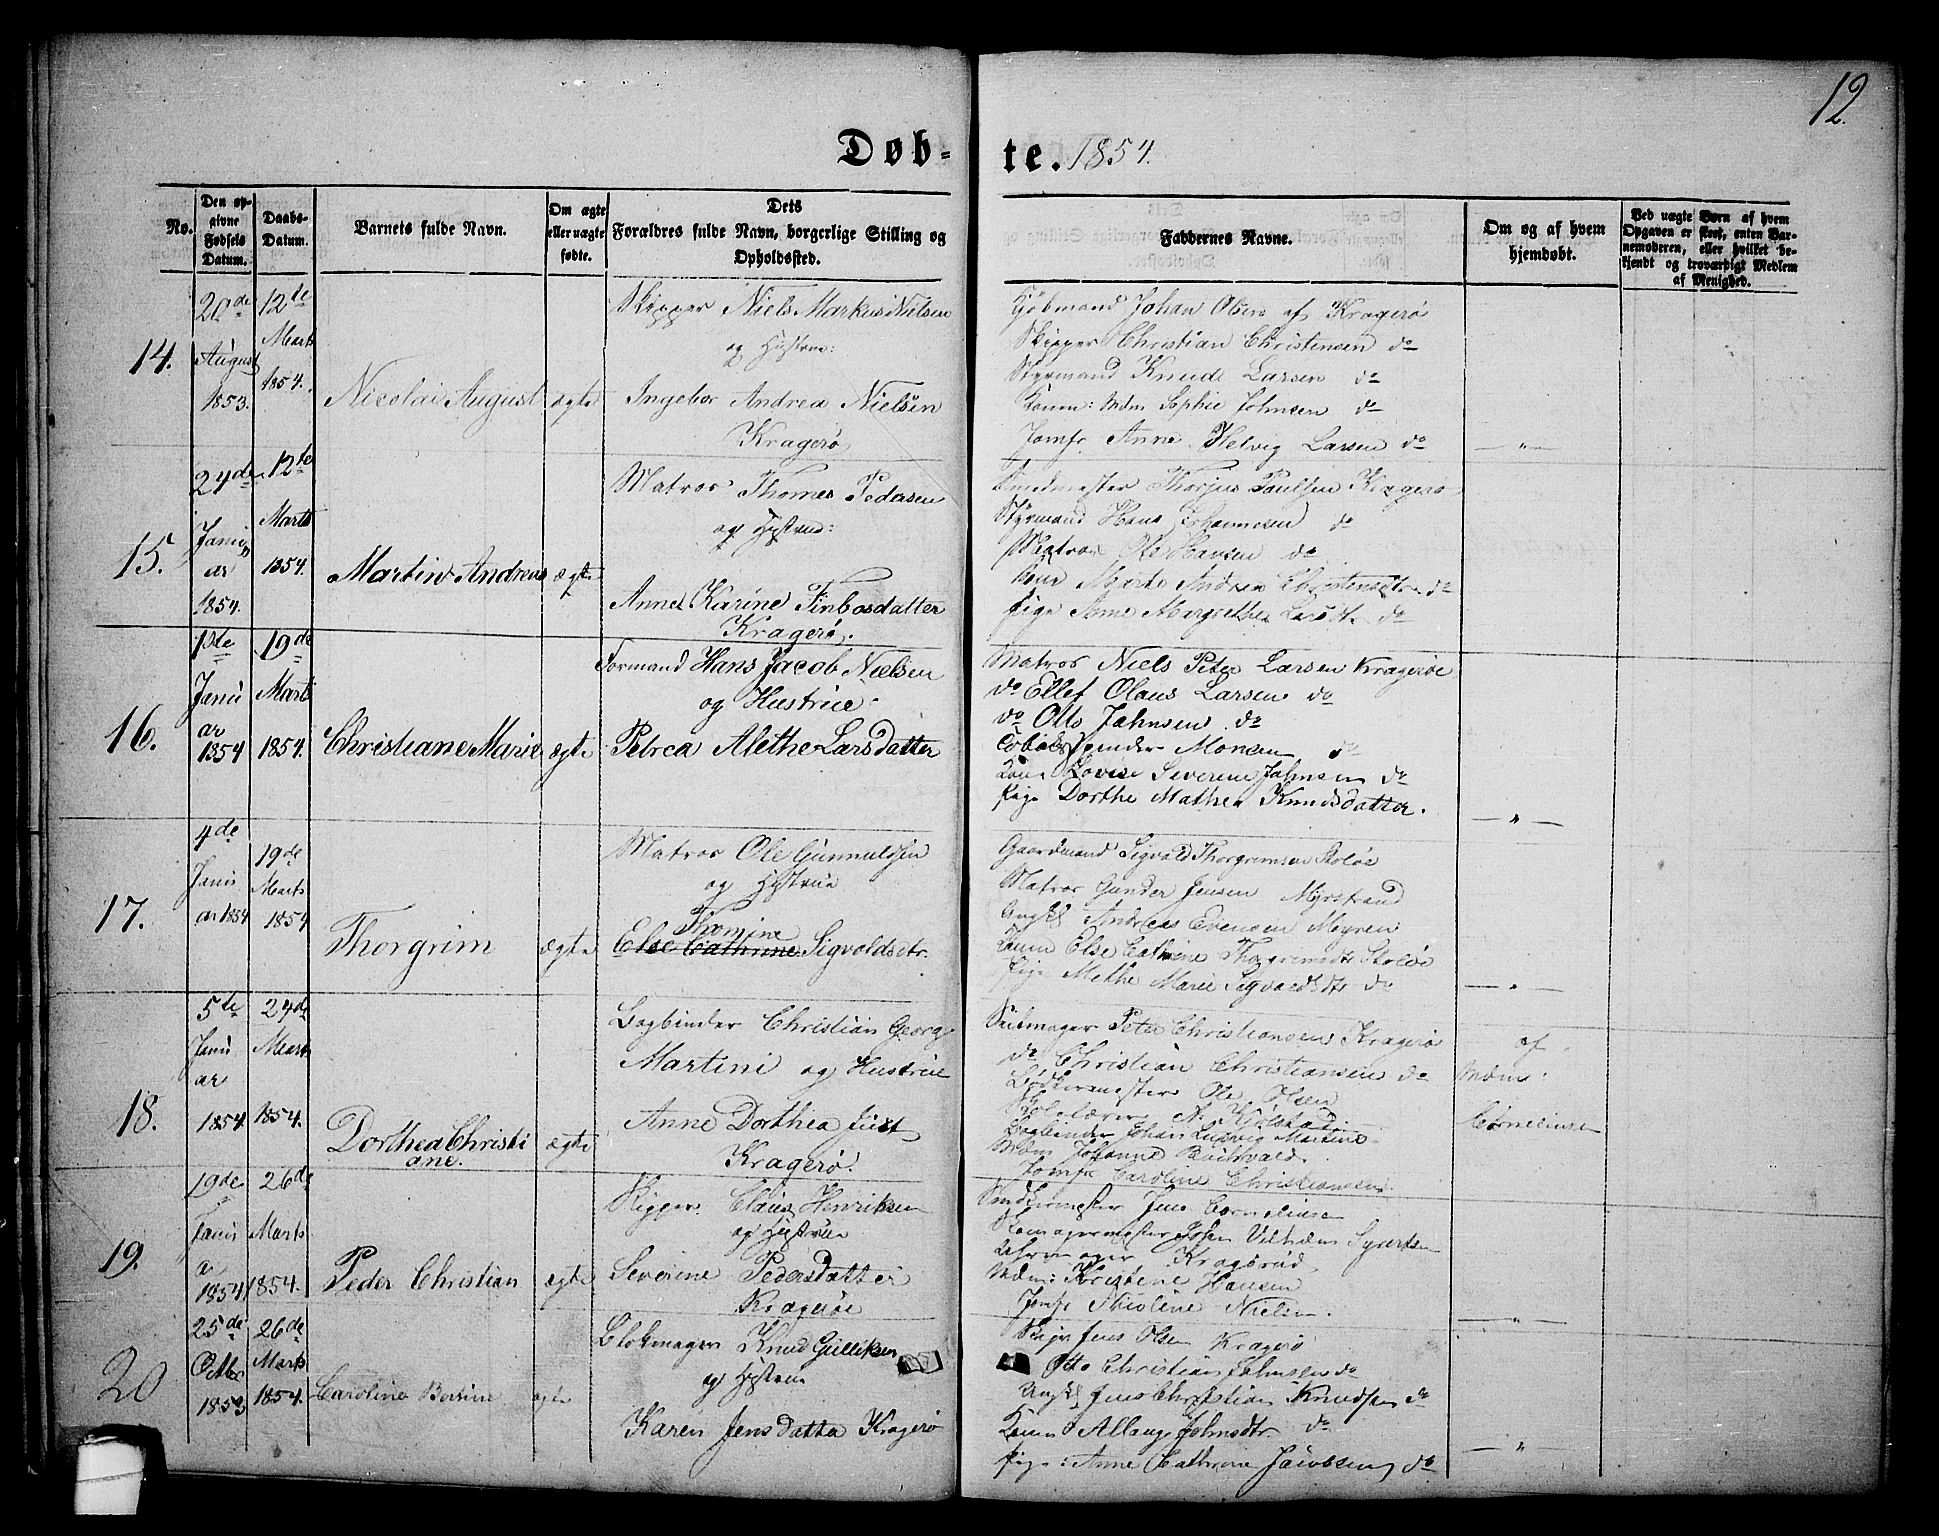 12.
Døb- te. 1854.
No.
Den op-
givne
Fødsels
Datum.
Daabs-
Datum.
Barnets fulde Navn.
Om ægte
eller uægte
fødte.
Dets
Forældres fulde Navn, borgerlige Stilling og
Opholdssted.
Faddernes Navne.
Om og af hvem
hjemdøbt.
Ved uægte Børn af hvem
Opgaven er skeet, enten Bar-
nemoderen, eller hvilket be-
kjendt og troværdigt Medlem
af Menighed.
14.
20de
August
1853.
12te
Marts
1854.
Nicolai August
ægte
Skipper Niels Markus Nielsen
og Hustrue:
Ingebor Andrea Nielsen
Kragerø
Kjøbmand Johan Olsen af Kragerø
Skipper Christian Christensen do
Styrmand Knud Larsen do
Konen: Mdm Sophie Johnsen do
Jomfr. Anne Helvig Larsen do
— " —
15.
24de
Janu-
ar
1854.
12te
Marts
1854.
Martin Andreas
ægte
Matros Thomes Pedersen
og Hustrue:
Anne Karine Finbosdatter
Kragerø.
Smedmester Thorjus Paulsen Kragerø
Styrmand Hans Johannesen do
Matros Ole Hansen do
Marte Andrea Christensdtr. do
Pige Anne Margrethe do
16.
1ste
Janu
ar
1854
19de
Marts
1854.
Christiane Marie
ægte
Formand Hans Jacob Nielsen
og Hustrue
Petrea Alethe Larsdatter
Matros Niels Peter Larsen Kragerøe
do Ellef Olaus Larsen do
do Otto Jahnsen do
Monsen do
Kone Lovise Severine Jahnsen do
Pige Dorthe Mathea Knudsdatter.
— " —
17.
4de
Janu
ar 1854
19de
Marts
1854
Thorgrim
ægte
Matros Ole Gunnuldsen
og Hustrue
Thomine
Else Cathrine Sigvoldsdtr.
Gaardmand Sigvald Thorgrimsen Stoløe
Matros Gunder Jensen Myrstrand
Ungkl Andreas Evensen Myren
Konen Else Cathrine Thorgremsdtr Stoløe
Pige Methe Marie Sigvaldsdtr do
— " —
18.
5te
Janu
ar
1854
24de
Marts
1854.
Dorthea Christi
ane.
ægte
Bogbinder Christian Georg
Martini og Hustrue
Anne Dorthea Just
Kragerø.
Seilmager Peter Christiansen Kragerø
do Christian Christiansen do
Bødkermester Ole Olsen
Skolelærer A. Kjølstad
Bogbinder Johan Ludvig Martine
Mdm Johanne Buchvald.
Jomfr Caroline Christiansen
af
Mdm
Cornelinsen
19.
19de
Janu
a
1854
26de
Marts
1854.
Peder Christian
ægte
Skipper Claus Henriksen
og Hustrue
Severine Pedersdatter
Kragerøe
Jens Cornelinsen
Vilhelm Syvertsen
Mdm: Kristene Hansen
Jomfr Nicoline Nielsen.
— " —
20
25de
Octbr
1853
26de
Marts
1854.
Caroline
ægte
Blokmager Knud Gulliksen
og Hustrue
Karen Jensdatter Kragerø
Jens Olsen Kragerø
Otto Christian Jahnsen do
Ungkl Jens Christian Knudsen do
Konen do
Pige: Anne Cathrine Jacobsen do
— " —